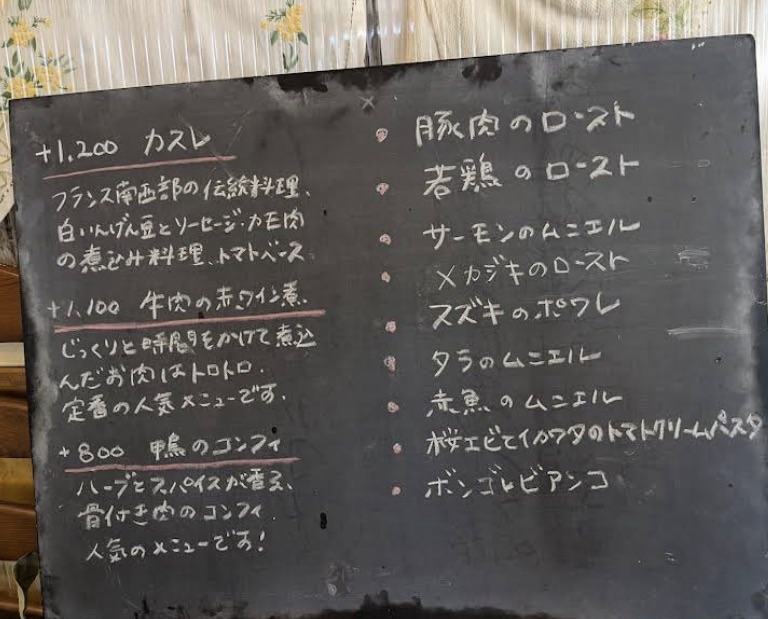 +1,200 カスレ
フランス南西部の伝統料理、
白いんげん豆とソーセージ・カモ肉
の煮込み料理、トマトベース
+1,100 牛肉の赤ワイン煮
じっくりと時間をかけて煮込
んだお肉はトロトロ。
定番の人気メニューです。
+800 鴨のコンフィ
ハーブとスパイスが香る、
骨付き肉のコンフィ
人気のメニューです!
豚肉のロースト
若鶏のロースト
サーモンのムニエル
メカジキのロースト
スズキのポワレ
タラのムニエル
赤魚のムニエル
桜エビとイカワタのトマトクリームパスタ
ボンゴレビアンコ